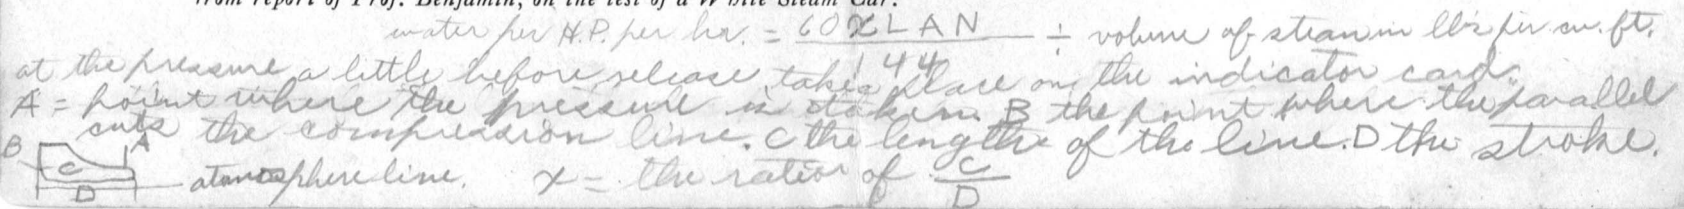 from report of Prof. Benjamin, on the test of a White Steam Car.
water per H.P. per hr. = 60 x L A N / 144 ÷ volume of steam in lbs per cu. ft.
at the pressure a little before release takes place on the indicator card.
A = point where the pressure is taken. B the point where the parallel
cuts the compression line. C the length of the line. D the stroke.
B A C D
atmosphere line. x = the ratio of C / D